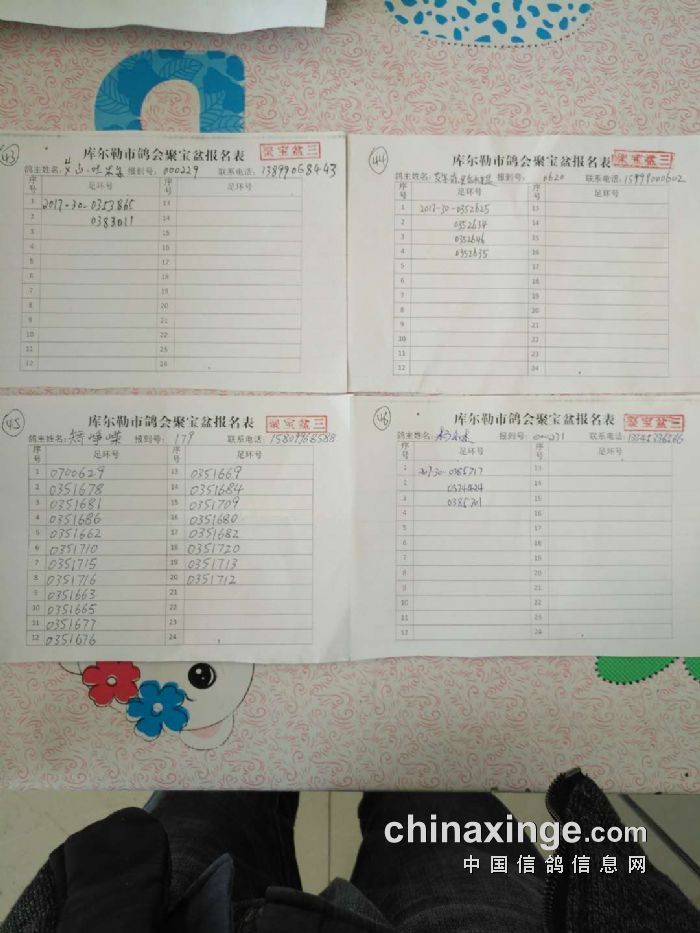 43
库尔勒市鸽会聚宝盆报名表
聚宝盆三
鸽主姓名: 报到号: 000229 联系电话: 13899068443
序号 足环号 序号 足环号
1 2017-30-0353865 13
2 0383011 14
3 15
4 16
5 17
6 18
7 19
8 20
9 21
10 22
11 23
12 24
44
库尔勒市鸽会聚宝盆报名表
聚宝盆三
鸽主姓名: 报到号: 0620 联系电话: 15999000602
序号 足环号 序号 足环号
1 2017-30-0352625 13
2 0352634 14
3 0352646 15
4 0352635 16
5 17
6 18
7 19
8 20
9 21
10 22
11 23
12 24
45
库尔勒市鸽会聚宝盆报名表
聚宝盆三
鸽主姓名: 报到号: 179 联系电话: 15809968588
序号 足环号 序号 足环号
1 0700629 13 0351669
2 0351678 14 0351684
3 0351681 15 0351709
4 0351686 16 0351680
5 0351662 17 0351682
6 0351710 18 0351720
7 0351715 19 0351713
8 0351716 20 0351712
9 0351663 21
10 0351665 22
11 0351677 23
12 0351676 24
46
库尔勒市鸽会聚宝盆报名表
聚宝盆三
鸽主姓名: 报到号: 联系电话:
序号 足环号 序号 足环号
1 13
2 14
3 0385701 15
4 16
5 17
6 18
7 19
8 20
9 21
10 22
11 23
12 24
chinaxinge.com
中国信鸽信息网